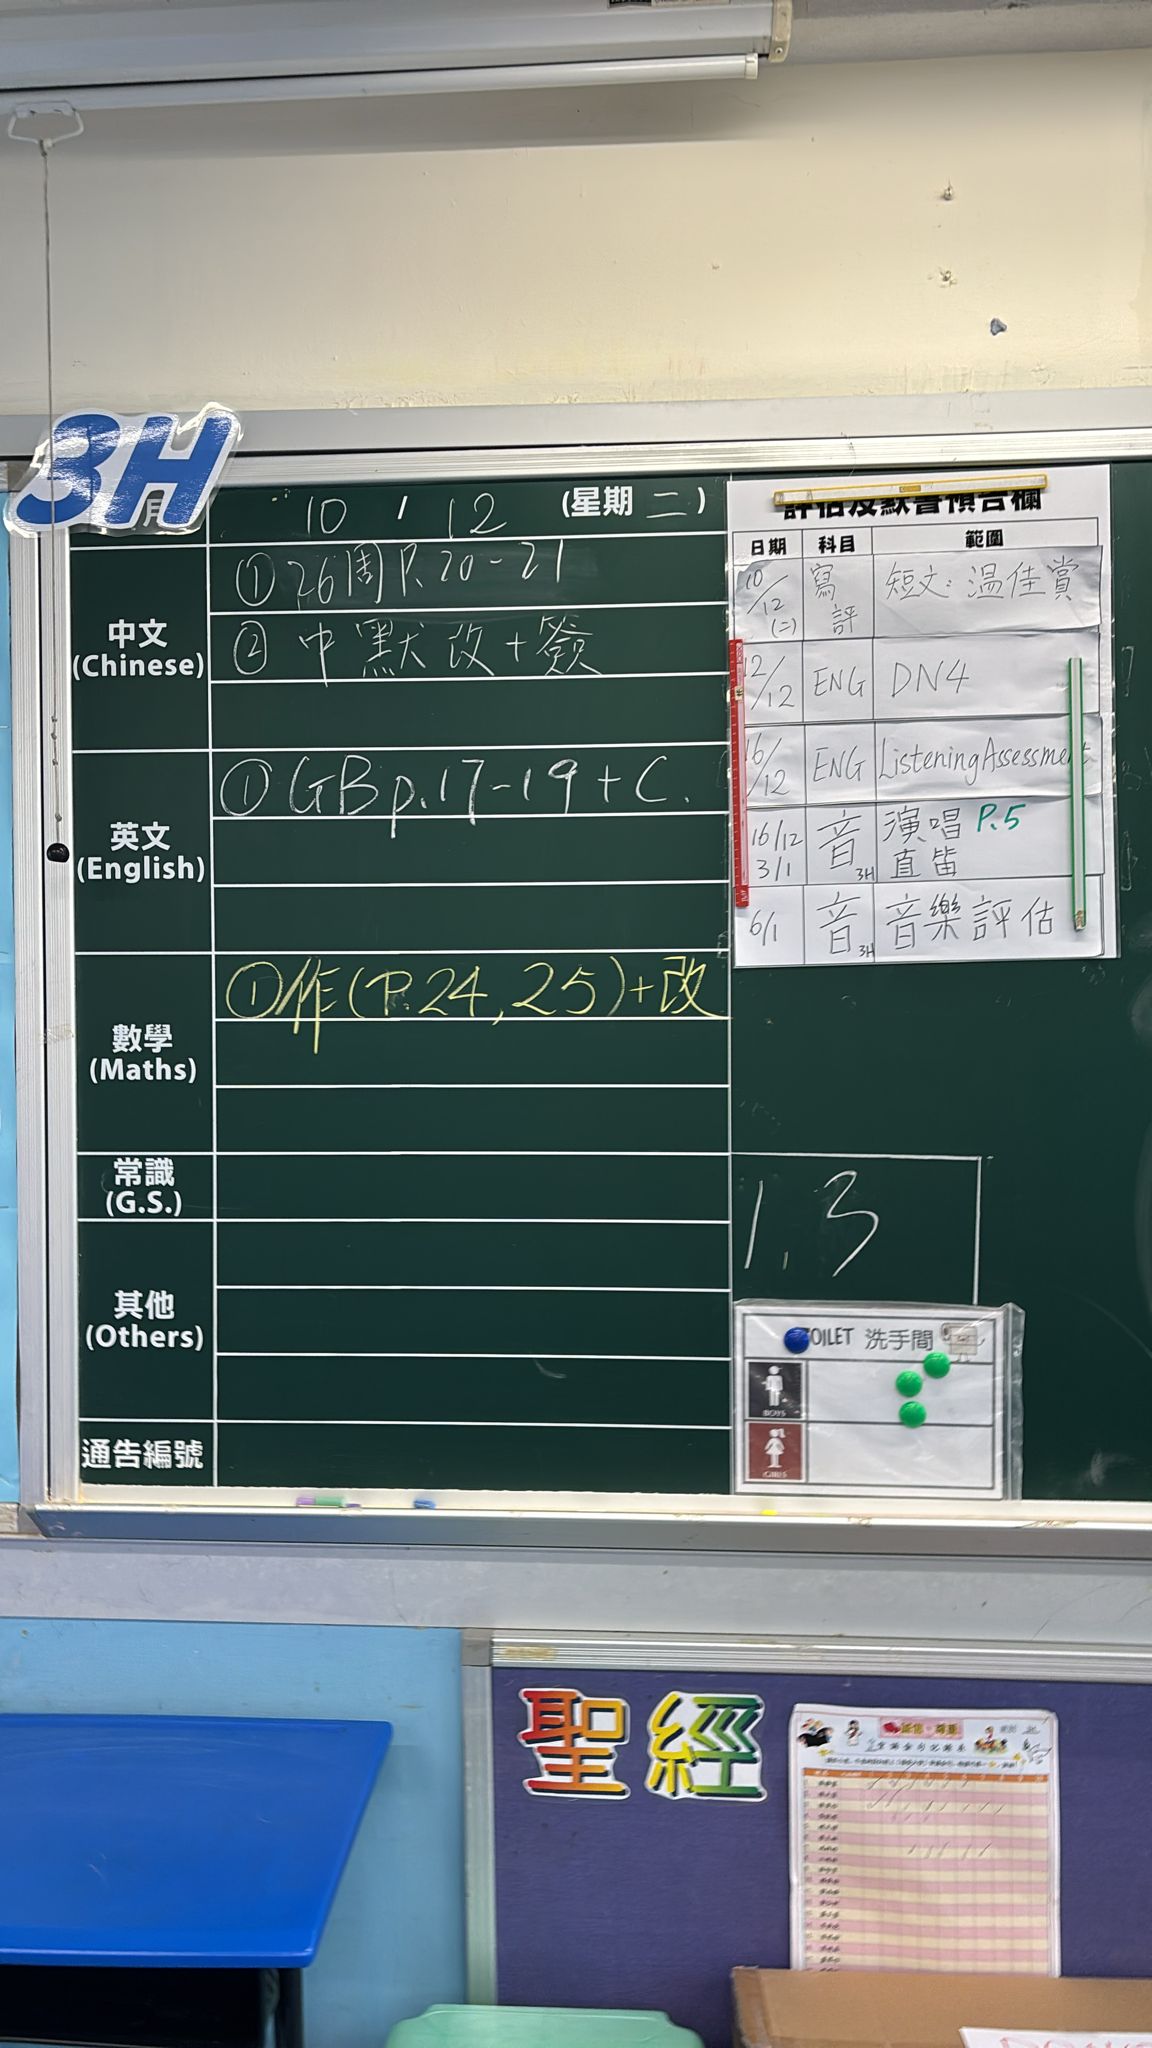 3H
月
10 / 12 (星期 二)
中文
(Chinese)
① 26周P.20-21
② 中默改+簽
英文
(English)
① GB p.17-19 + C.
數學
(Maths)
①作(P.24,25)+改
常識
(G.S.)
其他
(Others)
通告編號
評估及默書預告欄
日期 科目 範圍
10/12 (二) 寫評 短文:溫佳賞
12/12 ENG DN4
16/12 ENG Listening Assessment
16/12 3/1 音 3H 演唱 P.5 直笛
6/1 音 3H 音樂評估
1,3
TOILET 洗手間
BOYS
GIRLS
聖經